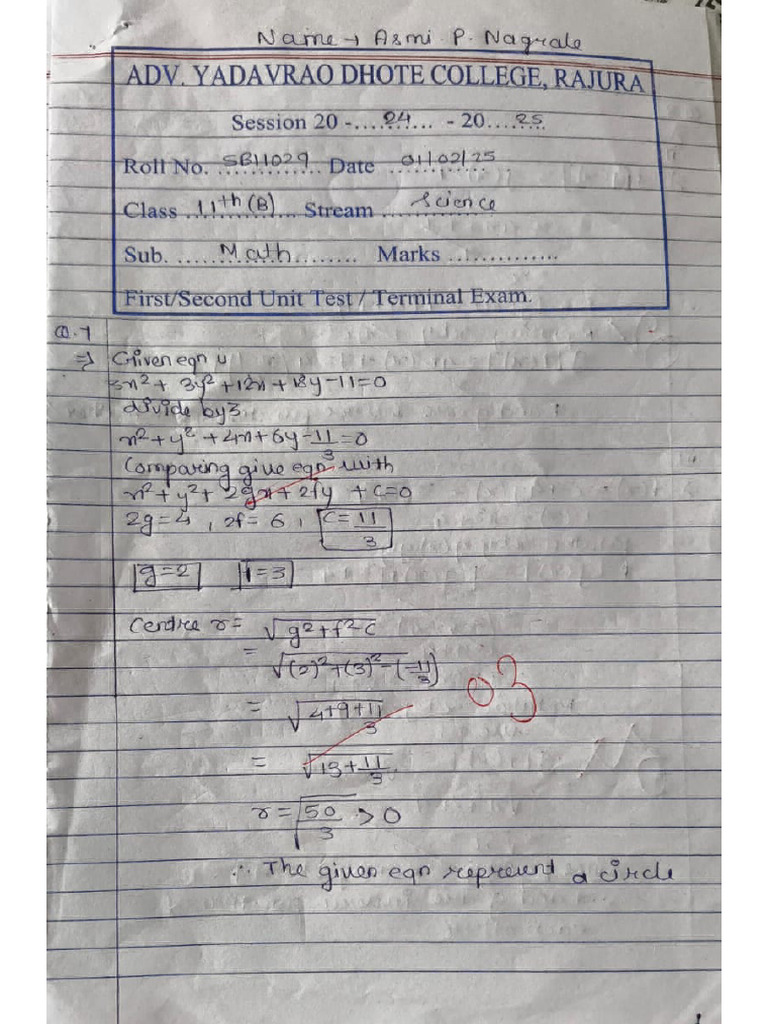 Name → Asmi P. Nagrale
ADV. YADAVRAO DHOTE COLLEGE, RAJURA
Session 20 -....24..... - 20....25...
Roll No. SB11029 Date 01/02/25
Class 11th (B) Stream Science
Sub. Math Marks ..............
First/Second Unit Test / Terminal Exam.
Q.1
⇒ Given eqn is
3x² + 3y² + 12x + 18y - 11 = 0
divide by 3
x² + y² + 4x + 6y - 11/3 = 0
Comparing give eqn with
x² + y² + 2gx + 2fy + c = 0
2g = 4 , 2f = 6 , c = 11/3
g = 2 f = 3
Centre r = √g² + f² - c
= √(2)² + (3)² - (-11/3)
03
= √4 + 9 + 11/3
= √13 + 11/3
r = √50/3 > 0
∴ The given eqn represent a circle